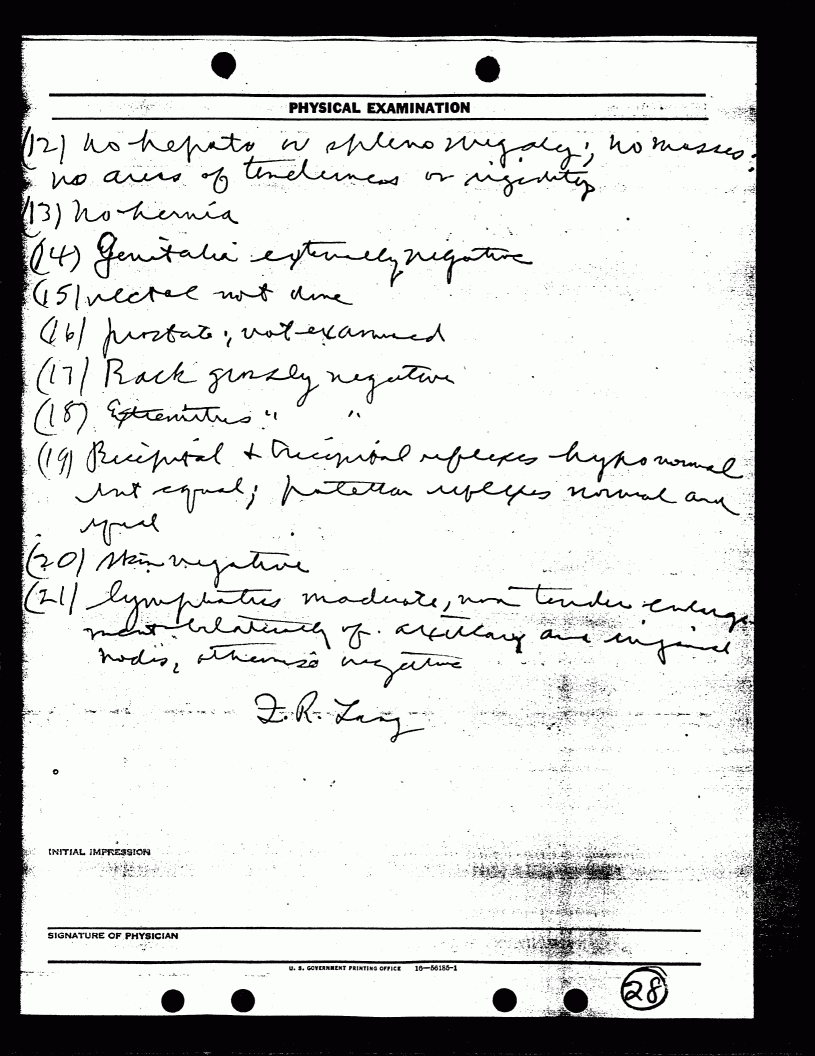 PHYSICAL EXAMINATION
(12) No hepato or spleno megaly; no masses;
no areas of tenderness or rigidity
(13) No hernia
(14) Genitalia externally negative
(15) rectal not done
(16) prostate; not examined
(17) Back grossly negative
(18) Extremities " "
(19) Bicipital & tricipital reflexes hyponormal
but equal; patellar reflexes normal and
equal
(20) Skin negative
(21) lymphatics moderate, non tender enlarge-
ment bilaterally of axillary and inguinal
nodes, otherwise negative
F. R. Lang
INITIAL IMPRESSION
SIGNATURE OF PHYSICIAN
U. S. GOVERNMENT PRINTING OFFICE 16—56185-1
28